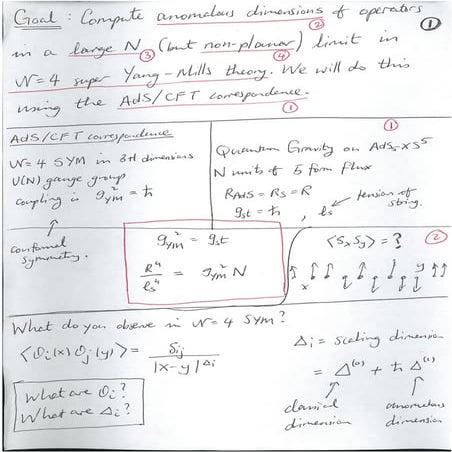 Goal : Compute anomalous dimensions of operators ①
②
in a large N (but non-planar) limit in
③ ④
N=4 super Yang-Mills theory. We will do this
using the AdS/CFT correspondence.
①
AdS/CFT correspondence
N=4 SYM in 3+1 dimensions
U(N) gauge group
coupling is g²YM = ħ
conformal
symmetry.
①
Quantum Gravity on AdS5×S⁵
N units of 5 form flux
RAdS = RS = R
gst = ħ , ls
tension of
string.
g²YM = gst
R⁴/ls⁴ = g²YM N
<SxSy> = ? ②
x y
What do you observe in N=4 SYM?
<Oi(x) Oj(y)> = δij / |x-y|Δi
What are Oi?
What are Δi?
Δi = scaling dimension
= Δ(0) + ħ Δ(1)
classical dimension
anomalous dimension